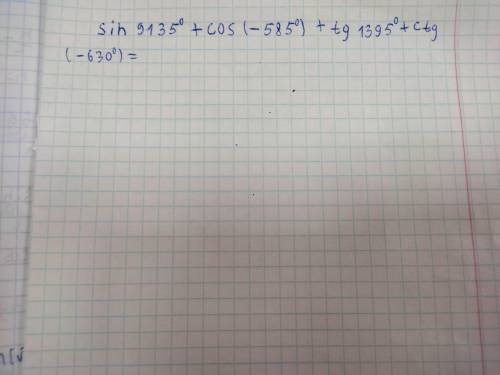 sin 9135⁰ + cos (-585⁰) + tg 1395⁰ + ctg
(-630⁰) =